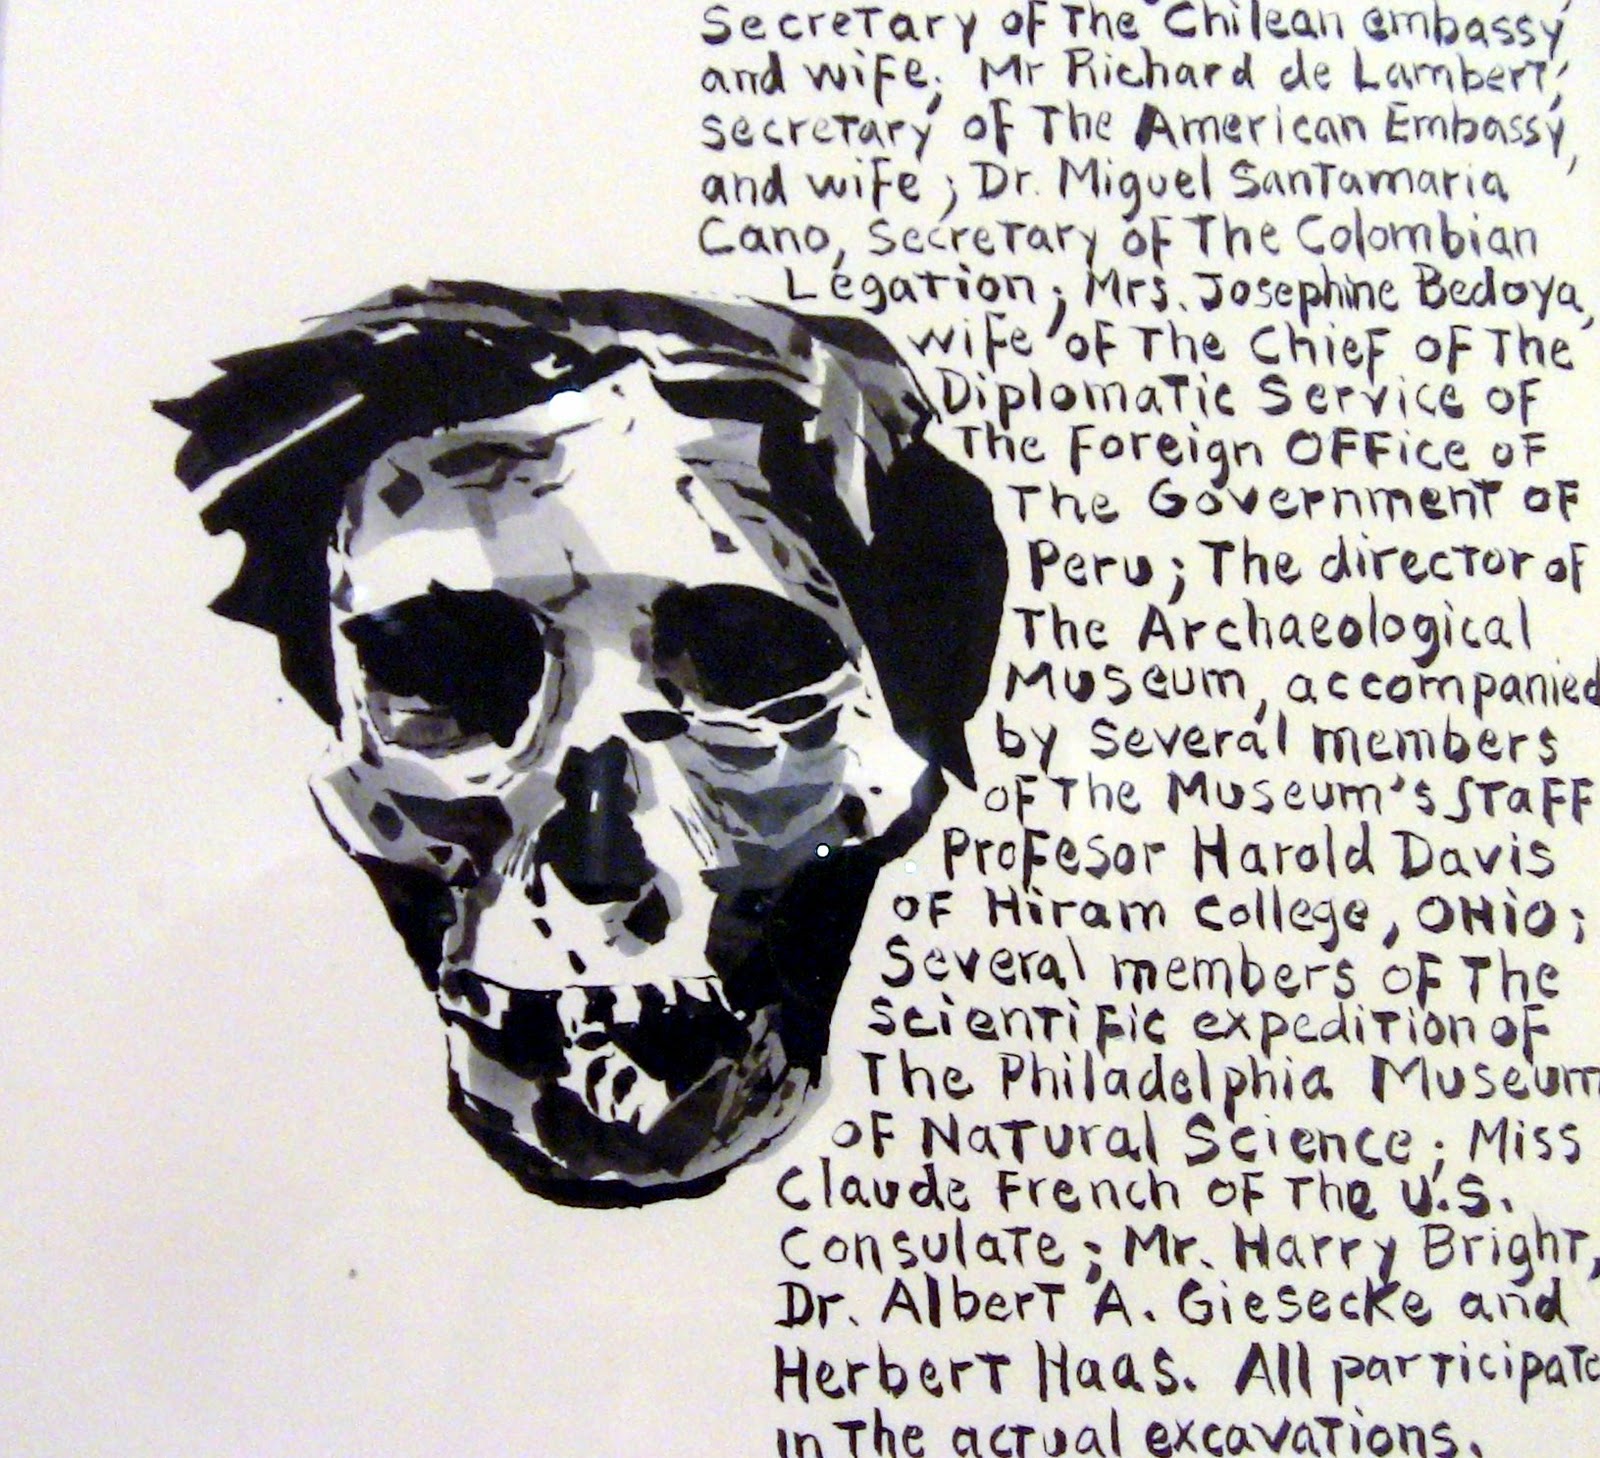 Secretary of the Chilean embassy
and wife; Mr Richard de Lambert,
secretary of the American Embassy,
and wife; Dr. Miguel Santamaria
Cano, Secretary of the Colombian
Legation; Mrs. Josephine Bedoya,
wife of the Chief of the
Diplomatic Service of
the Foreign Office of
the Government of
Peru; The director of
The Archaeological
Museum, accompanied
by several members
of the Museum's staff
Profesor Harold Davis
of Hiram College, OHiO;
Several members of the
scientific expedition of
The Philadelphia Museum
of Natural Science; Miss
Claude French of the U.S.
Consulate; Mr. Harry Bright,
Dr. Albert A. Giesecke and
Herbert Haas. All participate
in the actual excavations.